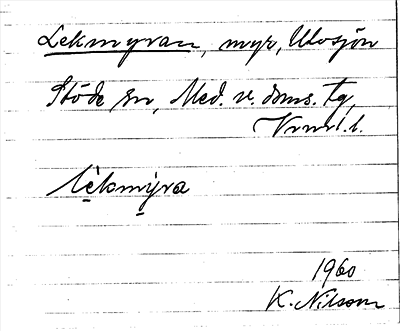 Lekmyran, myr, Utosjön
Stöde sn, Med. v. doms. tg,
Vrnrl. l.
lekmyra
1960
K. Nilsson